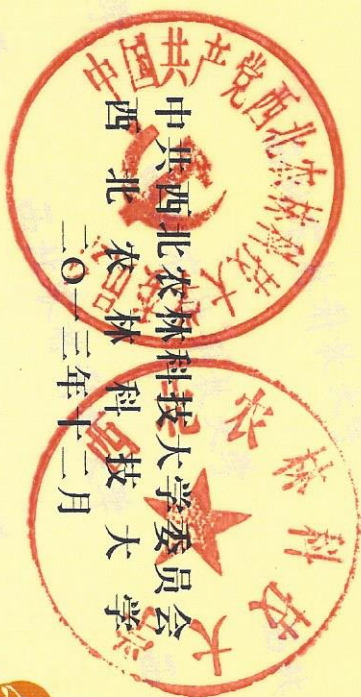 中共西北农林科技大学委员会
西北农林科技大学
二〇一三年十二月
中国共产党西北农林科技大学委员会
西北农林科技大学